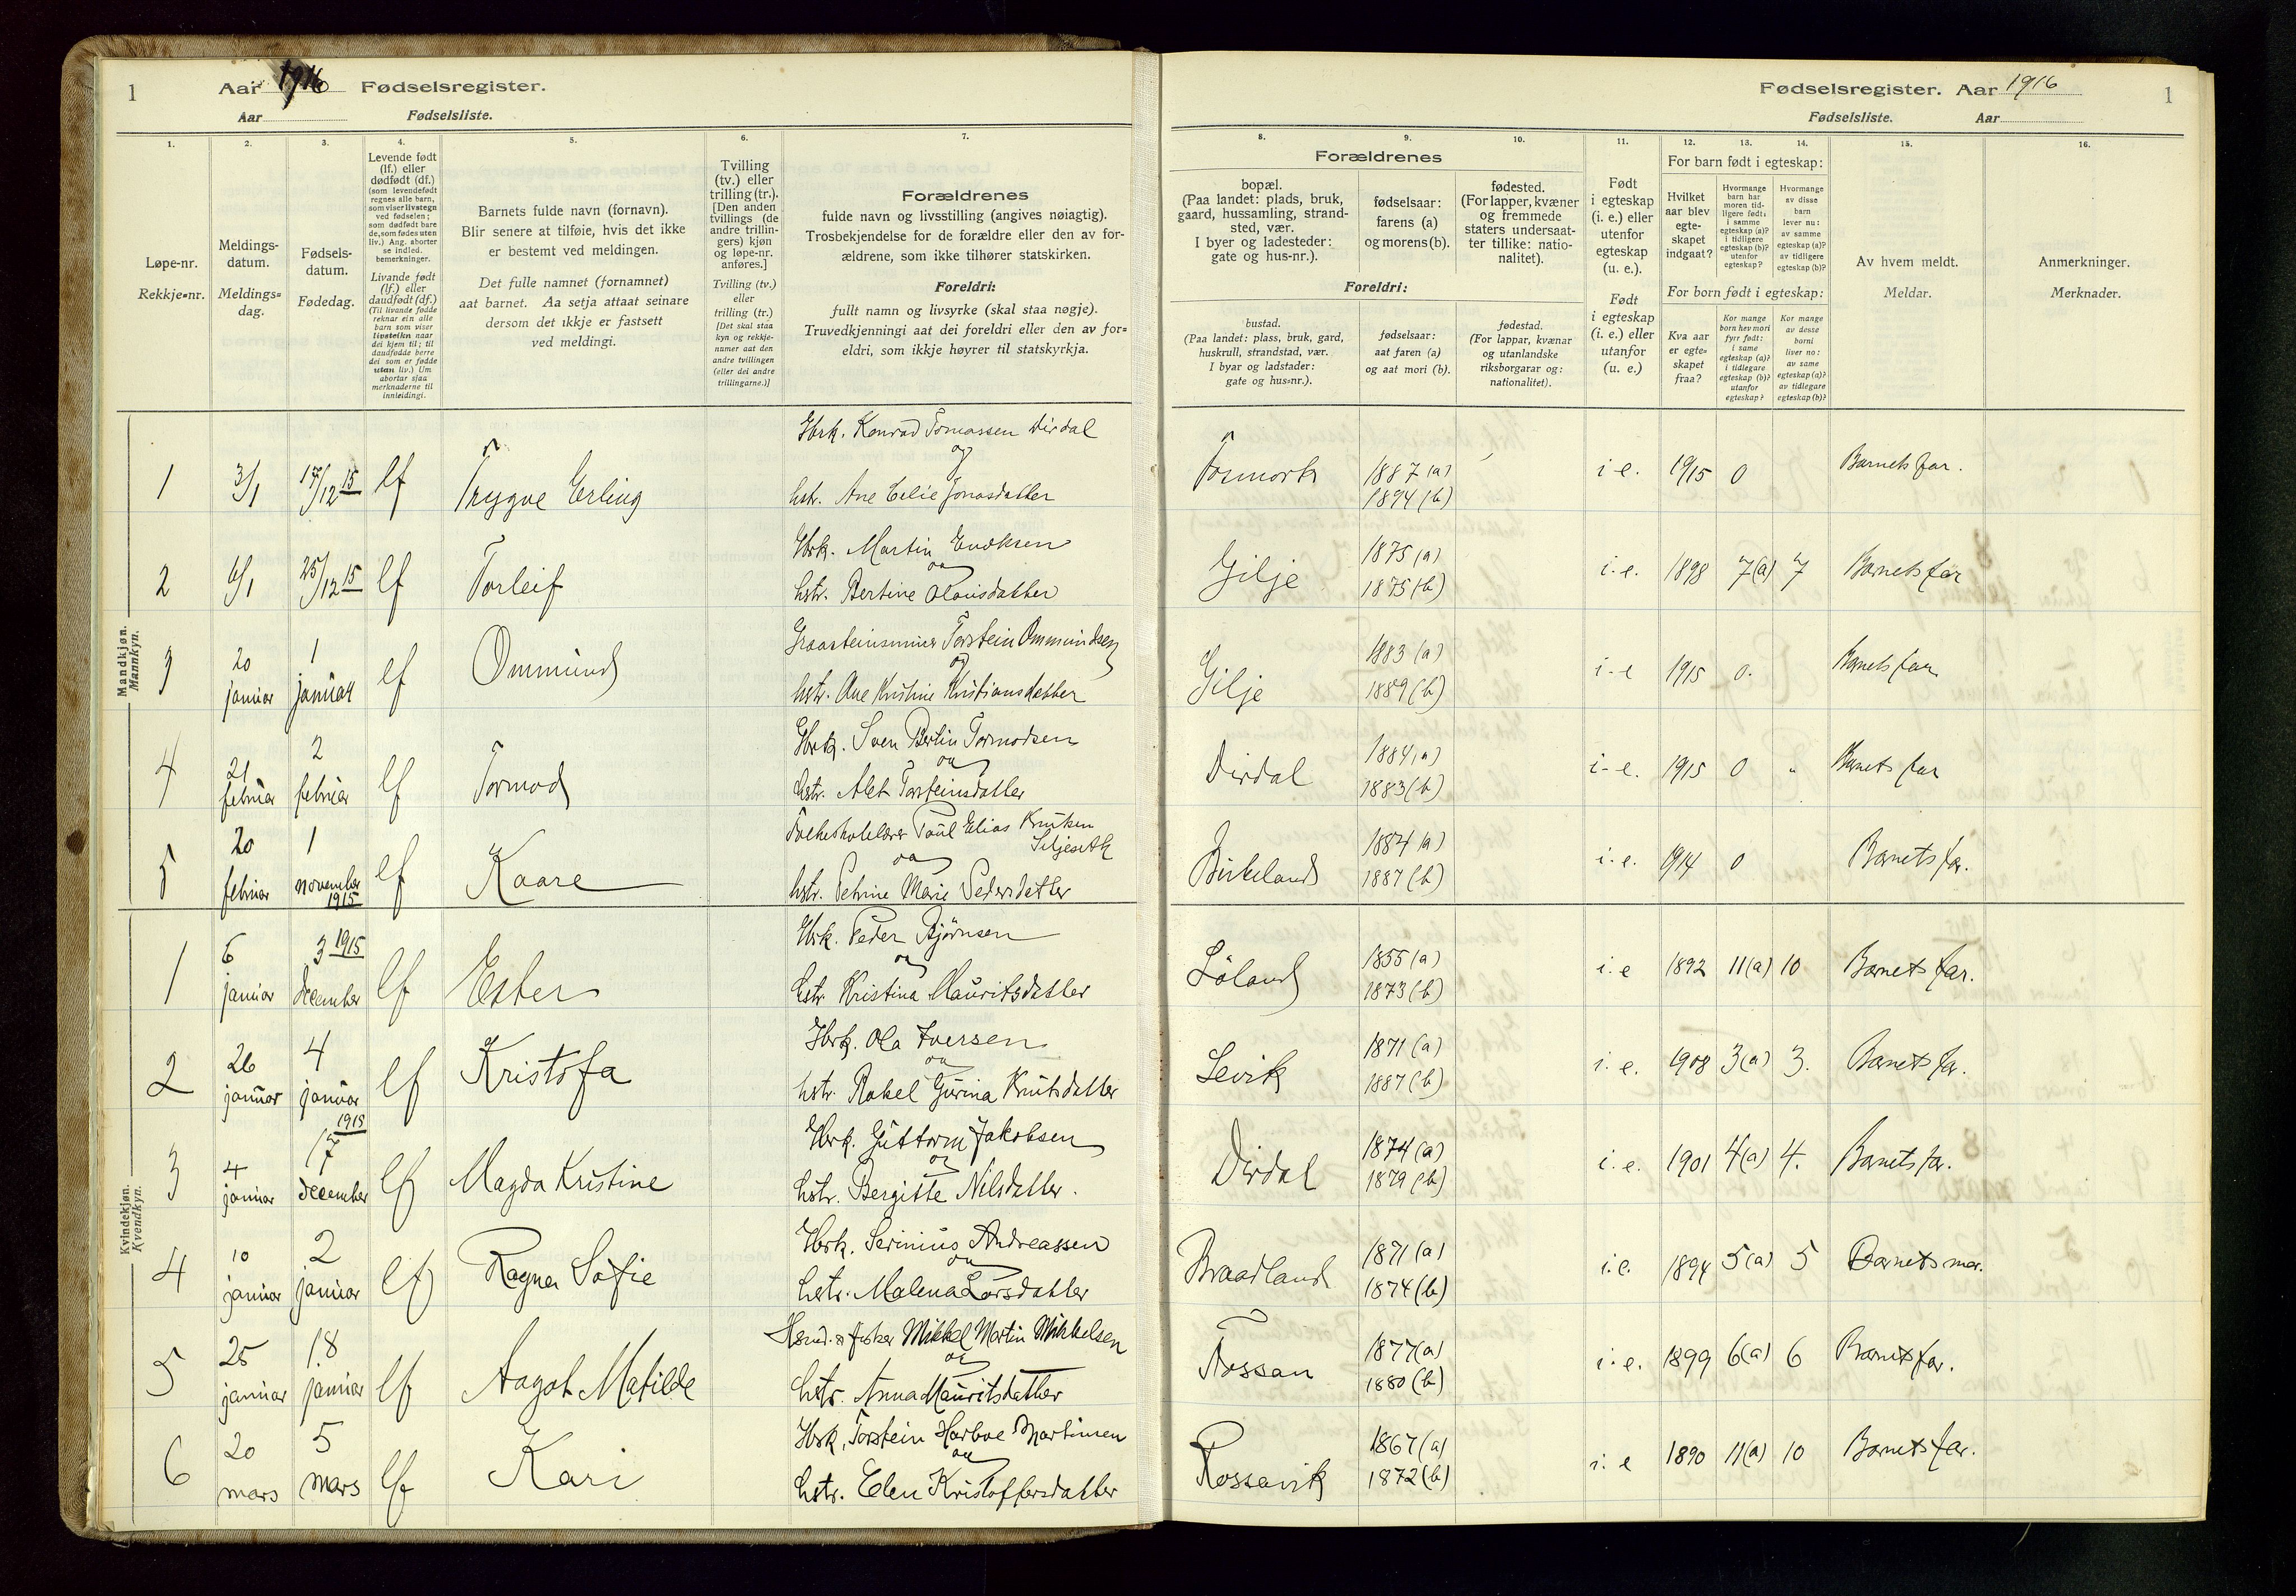 1 Aar 1916 Fødselsregister.
Aar Fødselsliste.
Fødselsregister. Aar 1916 1
Fødselsliste. Aar
1. 2. 3. 4. 5. 6. 7. 8. 9. 10. 11. 12. 13. 14. 15. 16.
Løpe-nr.
Rekkje-nr.
Meldings-
datum.
Meldings-
dag.
Fødsels-
datum.
Fødedag.
Levende født
(lf.) eller
dødfødt (df.)
(som levendefødt
regnes alle barn,
som viser livstegn
ved fødselen;
som dødfødt bare
de, som fødes uten
liv.) Ang. aborter
se indled.
bemerkninger.
Livande født
(lf.) eller
daudfødt (df.)
(Til livande fødde
reknar ein alle
barn som viser
livsteikn naar
dei kjem til; til
daudfødde berre
dei som er fødde
utan liv.) Um
abortar sjaa
merknaderne til
innleidingi.
Barnets fulde navn (fornavn).
Blir senere at tilføie, hvis det ikke
er bestemt ved meldingen.
Det fulle namnet (fornamnet)
aat barnet. Aa setja attaat seinare
dersom det ikkje er fastsett
ved meldingi.
Tvilling
(tv.) eller
trilling (tr.).
[Den anden
tvillings (de
andre trillin-
gers) kjøn
og løpe-nr.
anføres.]
Tvilling (tv.)
eller
trilling (tr.)
[Det skal staa
kyn og rekkje-
numer aat den
andre tvillingen
(eller dei andre
trillingarne.)]
Forældrenes
fulde navn og livsstilling (angives nøiagtig).
Trosbekjendelse for de forældre eller den av for-
ældrene, som ikke tilhører statskirken.
Foreldri:
fullt namn og livsyrke (skal staa nøgje).
Truvedkjenningi aat dei foreldri eller den av for-
eldri, som ikkje høyrer til statskyrkja.
Forældrenes
bopæl.
(Paa landet: plads, bruk,
gaard, hussamling, strand-
sted, vær.
I byer og ladesteder:
gate og hus-nr.).
fødselsaar:
farens (a)
og morens (b).
fødested.
(For lapper, kvæner
og fremmede
staters undersaat-
ter tillike: natio-
nalitet).
Foreldri:
bustad.
(Paa landet: plass, bruk, gard,
huskrull, strandstad, vær.
I byar og ladstader:
gate og hus-nr.).
fødselsaar:
aat faren (a)
og aat mori (b).
fødestad.
(For lappar, kvænar
og utanlandske
riksborgarar og:
nationalitet).
Født
i egteskap
(i. e.) eller
utenfor
egteskap
(u. e.).
Født
i egteskap
(i. e.) eller
utanfor
(u. e.)
For barn født i egteskap:
Hvilket
aar blev
egte-
skapet
indgaat?
Hvormange
barn har
moren tid-
ligere født:
i samme
egteskap (a)?
i tidligere
egteskap (b)?
utenfor
egteskap?
Hvormange
av disse
barn
lever nu:
av samme
egteskap (a)?
av tidligere
egteskap (b)?
For born født i egteskap:
Kva aar
er egte-
skapet
fraa?
Kor mange
born hev mori
fyrr født:
i same
egteskap (a)?
i tidlegare
egteskap (b)?
utanfor
egteskap?
Kor mange
av desse
borni
liver no:
av same
egteskap (a)?
av tidlegare
egteskap (b)?
Av hvem meldt.
Meldar.
Anmerkninger.
Merknader.
Mandkjøn.
Mannkyn.
1 3/1 17/12 15 lf Trygve Erling Gbrk. Konrad Tomassen Dirdal
og
hstr. Ane Celie Jonasdatter Fosmork 1887 (a) 1894 (b) i e. 1915 0 Barnets far.
2 6/1 25/12 15 lf Torleif Gbrk. Martin Enoksen
og
hstr. Bertine Olausdatter Gilje 1875 (a) 1875 (b) i. e. 1898 7(a) 7 Barnets far
3 20 januar 1 januar lf Ommund Torstein Ommundsen
og
hstr. Ane Kristine Kristiansdatter Gilje 1883 (a) 1889 (b) i - e 1915 0. Barnets far
4 21 februar 2 februar lf Tormod Gbrk. Sven Bertin Tormodsen
og
hstr. Alet Torsteinsdatter Dirdal 1884 (a) 1883 (b) i - e. 1915 0 " Barnets far
5 20 februar 1 november 1915 lf Kaare Folkeskolelærer Paul Elias Knutsen
og
hstr. Petrine Marie Pedersdatter Birkeland 1884 (a) 1887 (b) i. e. 1914 0 Barnets far.
Kvindekjøn.
Kvendkyn.
1 6 januar 3 1915 december lf Ester Gbrk. Peder Bjørnsen
og
hstr. Kristina Mauritsdatter Løland 1855 (a) 1873 (b) i. e 1892 11(a) 10 Barnets far.
2 26 januar 4 januar lf Kristofa Gbrk. Ola Iversen
og
hstr. Rakel Gurina Knutsdatter Levik 1871 (a) 1887 (b) i. e. 1908 3(a) 3. Barnets far.
3 4 januar 1915 17 december lf Magda Kristine Gbrk. Guttorm Jakobsen
og
hstr. Bergitte Nilsdatter. Dirdal 1874 (a) 1879 (b) i. e. 1901 4(a) 4. Barnets far.
4 10 januar 2 januar lf Ragna Sofie Gbrk. Serinius Andreassen
og
hstr. Malena Larsdatter Braadland 1871 (a) 1874 (b) i. e. 1894 5(a) 5 Barnets mor.
5 25 januar 18 januar lf Aagot Matilde fisker Mikkel Martin Mikkelsen
og
hstr. Anna Mauritsdatter Fossan 1877 (a) 1880 (b) i. e. 1899 6(a) 6 Barnets far.
6 20 mars 5 mars lf Kari Gbrk. Torstein Harboe Martinsen
og
hstr. Elen Kristoffersdatter Rossavik 1867 (a) 1872 (b) i. e 1890 11(a) 10 Barnets far.